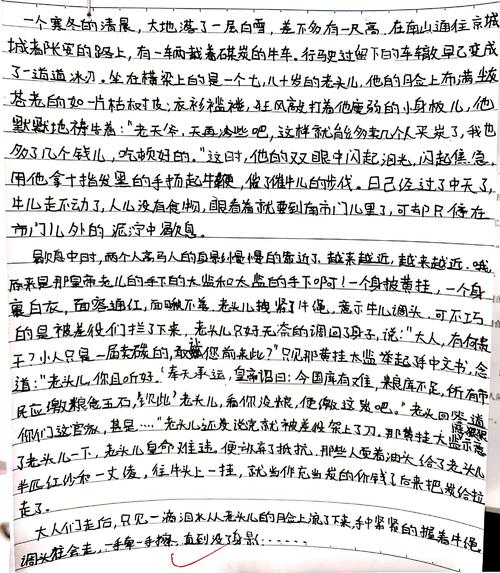 一个寒冬的清晨，大地落了一层白雪，差不多有一尺高，在南山通往京城
或者张家的路上，有一车两载着煤炭的牛车。行驶过留下的车辙早已变成
了一道道冰刃。坐在横梁上的是一个七，八十岁的老头儿，他的脸上布满皱
苍老的如一片枯树皮；衣衫褴褛，狂风敲打着他瘦弱的小身板儿，他
默默地祷告着：“老天爷，天再冷些吧，这样就能多卖几个人买炭了，我也
多了几个钱儿，吃顿好的。”这时，他的双眼中闪起泪光，闪起焦急。
用他拿十指发黑的手扬起牛鞭，催了催牛儿的步伐。日已经过了中天了，
牛儿走不动了，人儿没有食物，眼看着就要到南市门儿里了，可却只停在
市门儿外的泥泞中歇息。
歇息中时，两个人高马大的身影慢慢的靠近了，越来越近，越来越近。哦，
原来是那皇帝老儿的手下的太监和太监的手下啊！一个身披黄挂，一个身
裹白衣，面容通红，面瞅不善，老头儿拽紧了牛绳，意示牛儿调头，可不巧
的是被差役们拦了下来，老头儿只好无奈的调回了身子，说：“大人，有何贵
干？小人只是一届卖碳的，敢让您前来此？”只见那黄挂太监举起手中文书，念
道：“老头儿，你且听好。‘奉天承运，皇帝诏曰：今国库有难，米粮库不足，所有市
民应缴粮食五石，钦此’老头儿，看你没粮，便缴这炭吧。”老头回答道
你们这官家，甚是……”老头儿还没说完就被差役架上了刀，那黄挂大监示意
了老头儿一下，老头儿皇命难违，便放弃了抵抗，那些人耍着油头给了老头儿
半匹红纱和一丈绫，往牛头上一挂，就当作充当炭的价钱了后来把炭给拉
走了。
大人们走后，只见一滴泪水从老头儿的脸上流了下来，手中紧紧的握着牛绳，
调头往会走，一手牵一手擦，直到没了身影……